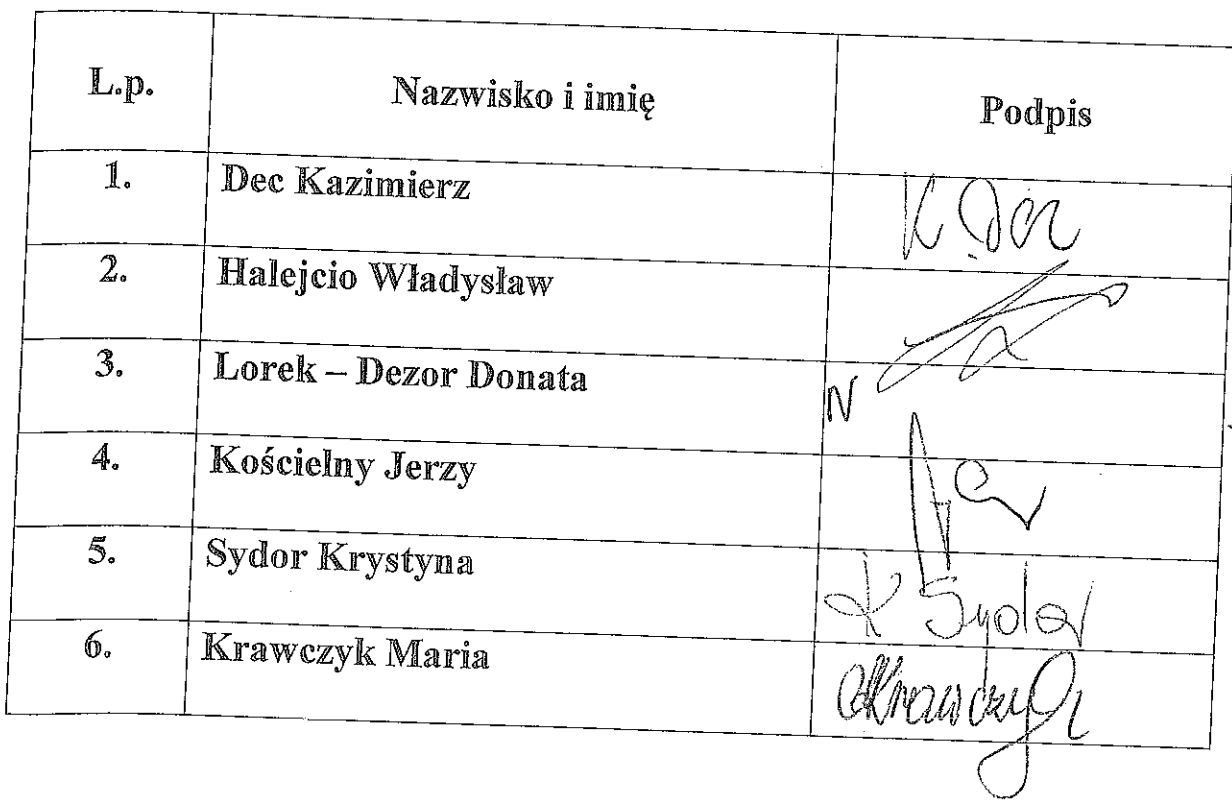 L.p. Nazwisko i imię Podpis
1. Dec Kazimierz K Dec
2. Halejcio Władysław
3. Lorek – Dezor Donata N
4. Kościelny Jerzy
5. Sydor Krystyna K Sydor
6. Krawczyk Maria Krawczyk